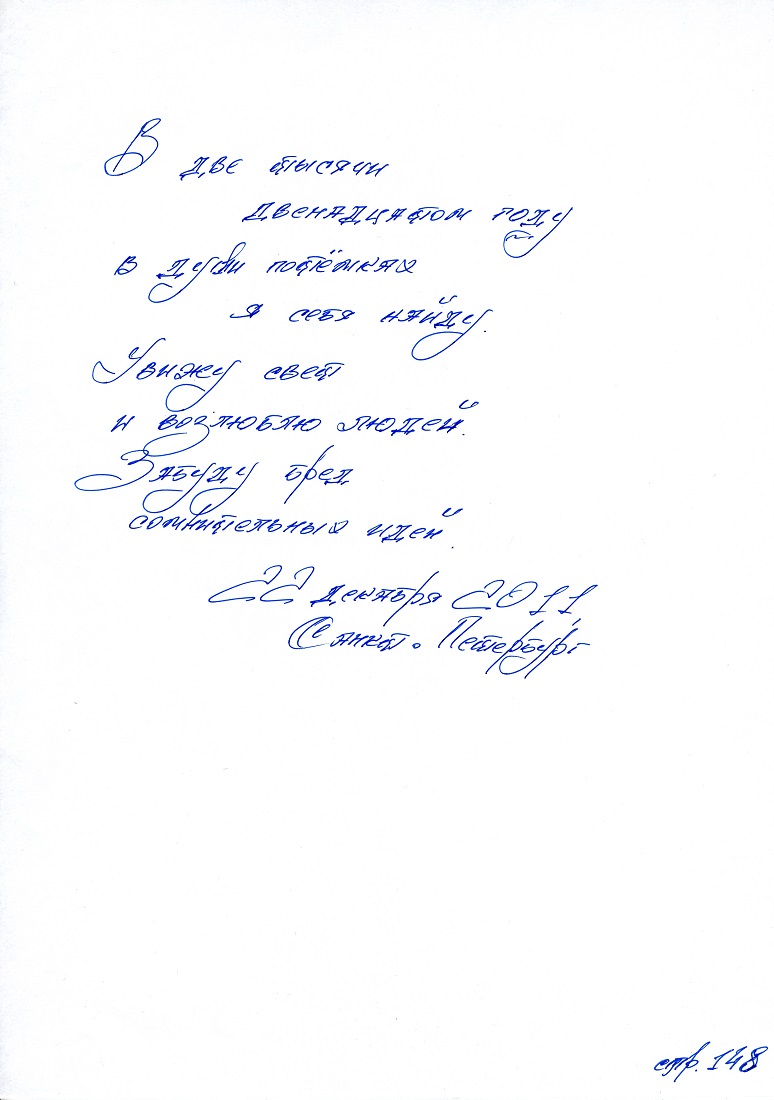 В две тысячи
двенадцатом году
в души потёмках
я себя найду.
Увижу свет
и возлюблю людей.
Забуду бред
сомнительных идей.
22 декабря 2011,
Санкт-Петербург
стр. 148